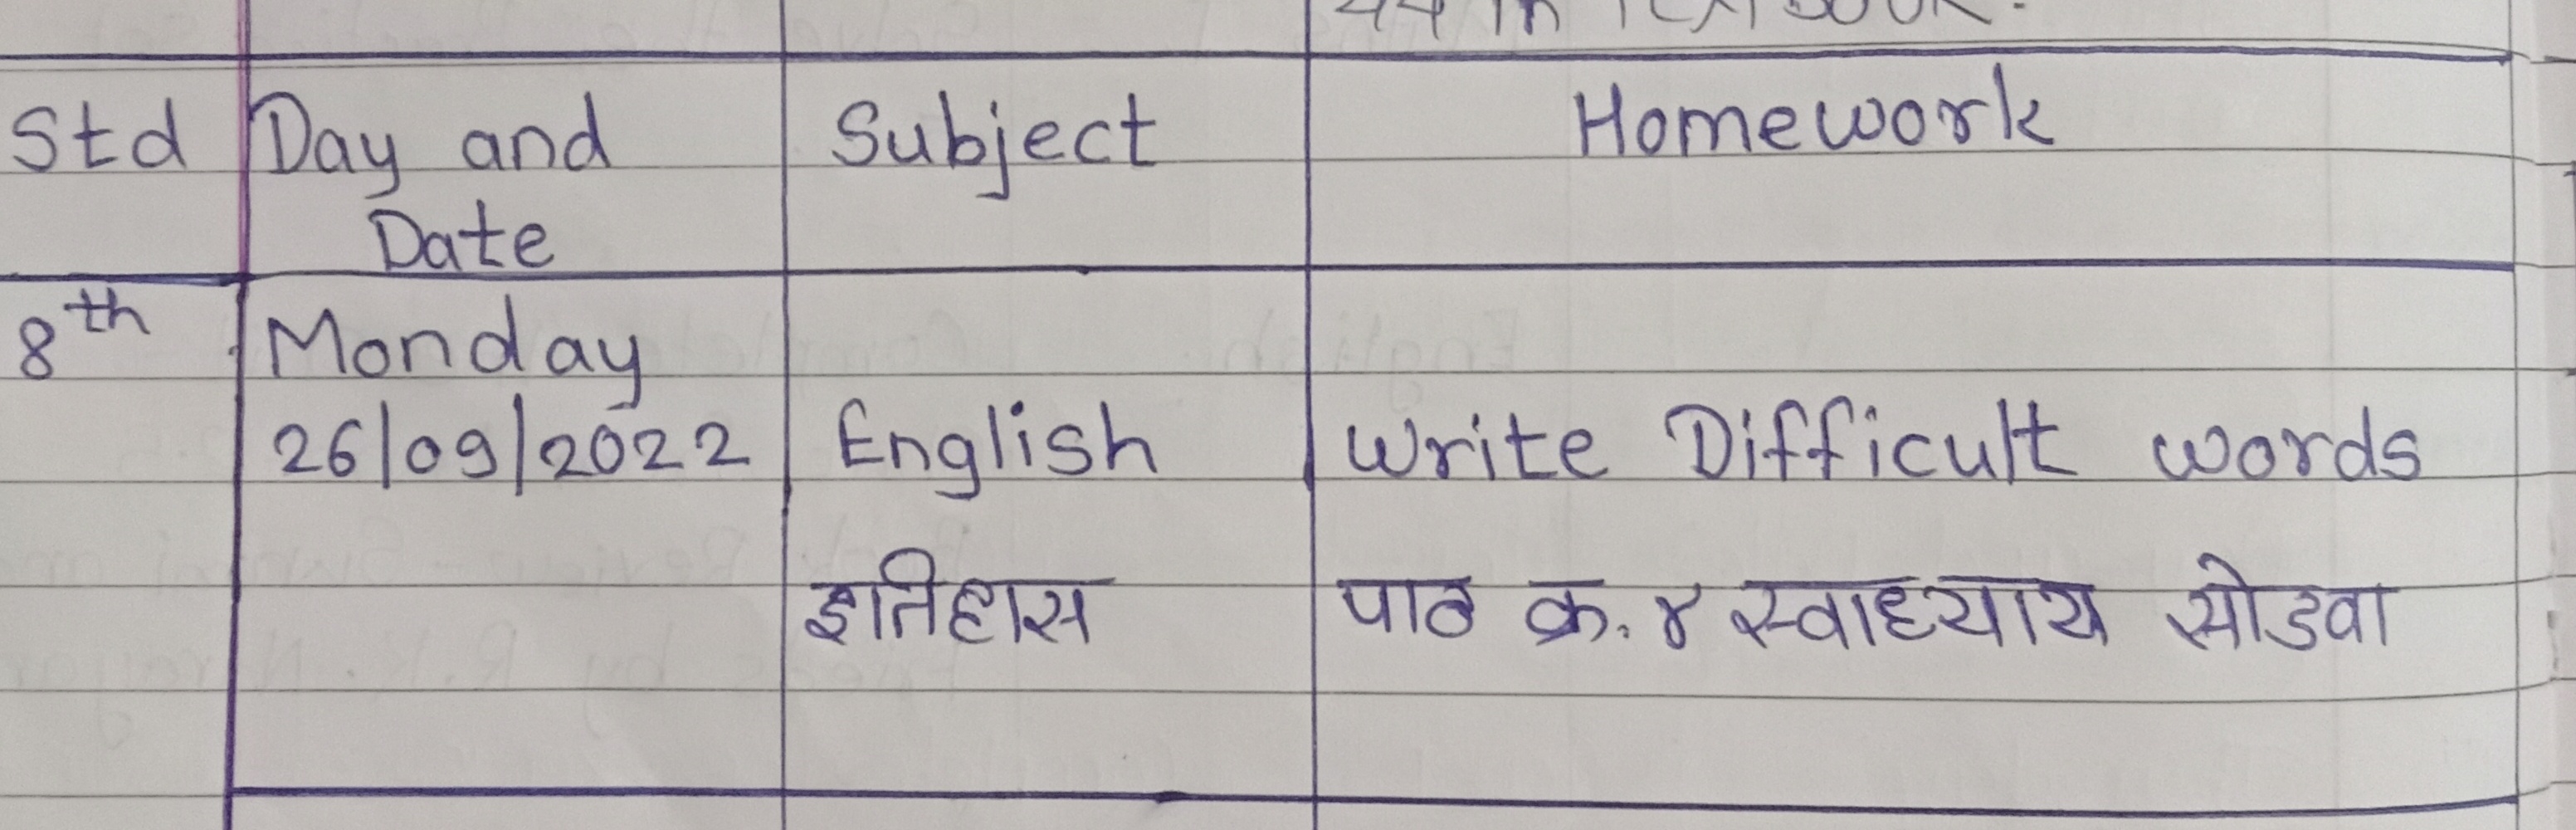 44 in TEXTBOOK.
Std Day and Subject Homework
Date
8th Monday
26/09/2022 English Write Difficult words
इतिहास पाठ क्र. ४ स्वाध्याय सोडवा